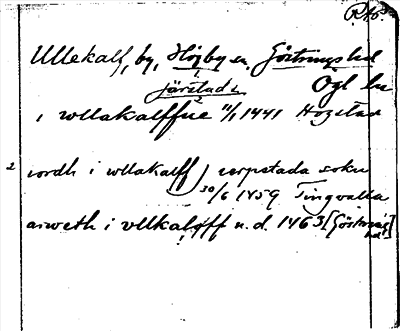 RAp.
Ullekalf, by, Högby sn, Göstrings hd
Järstads
Ögl ln
i wllakalffue 11/1 1441 Hogstad
2 iordh i wllakalff) rerpstada sokn
30/6 1459 Tingvalla
arweth i vllkalff u.d. 1463 [Göstrings
hd]